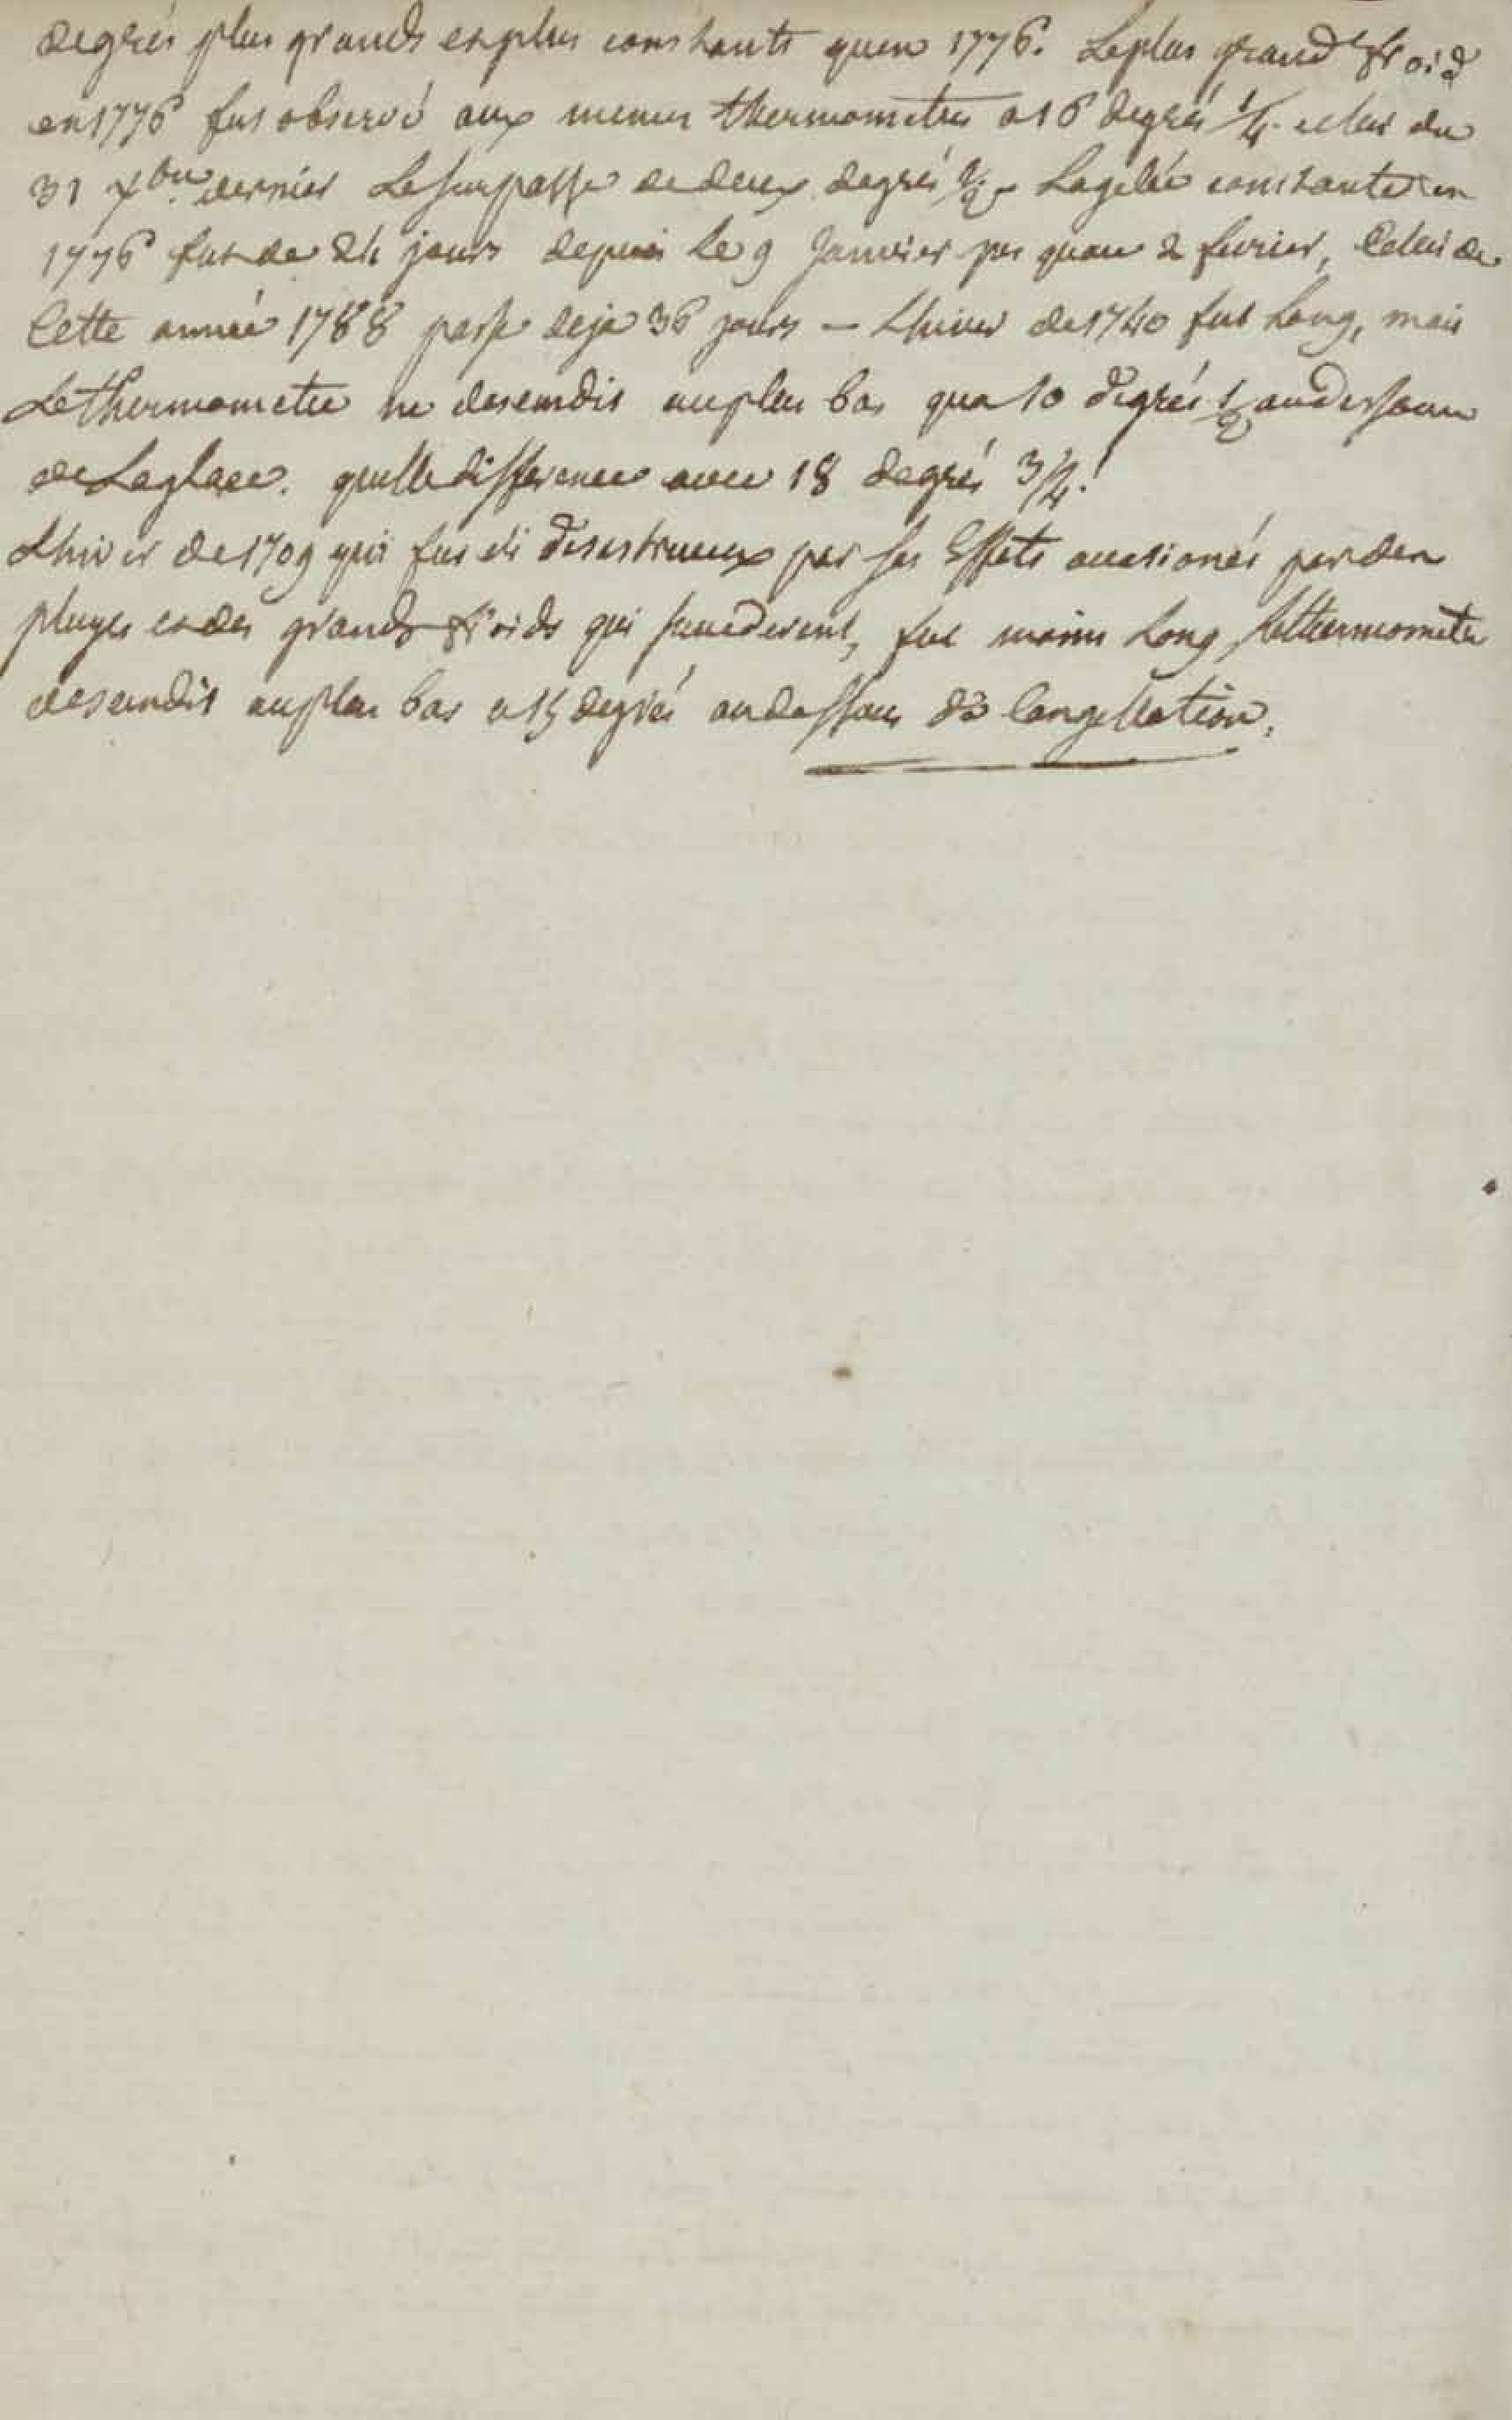 degrés plus grands et plus constants quen 1776. Le plus grand froid
en 1776 fut observé aux memes thermometres a 16 degrés 1/4. celui du
31 xbre. dernier Le surpasse de deux degrés 1/2 - La gelée constante en
1776 fut de 24 jours depuis Le 9 Janvier jus quau 2 fevrier, Celui de
Cette année 1788 passe deja 36 jours - Lhiver de 1740 fut Long, mais
Le thermometre ne descendit au plus bas qua 10 degrés 1/2 au dessous
de La glace. quelle difference avec 18 degrés 3/4!
Lhiver de 1709 qui fut si desastrueux par ses Effets occasionés par des
pluyes et des grands froids qui succederent, fut moins Long, le thermometre
descendit au plus bas a 15 degrés au dessous de Congellation.